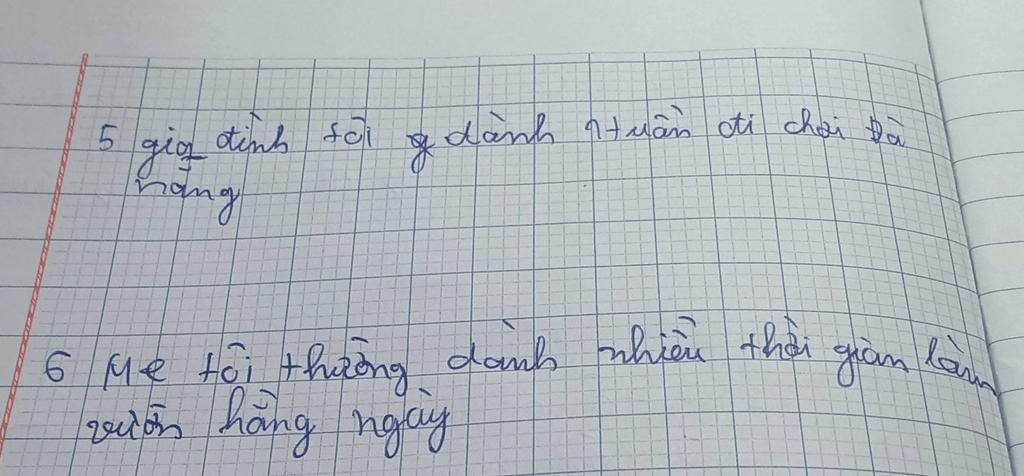 5 gia đình tôi dành 1 tuần đi chơi Đà
nẵng
6 Mẹ tôi thường dành nhiều thời gian làm
vườn hằng ngày